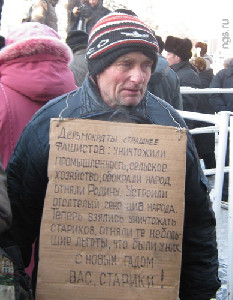 ngs.ru
Дерьмократы страшнее
фашистов: уничтожили
промышленность, сельское
хозяйство, обокрали народ
отняли Родину. Устроили
своего народа.
Теперь взялись уничтожать
стариков, отняли те небольшие льготы, что были у них.
С новым гадом
вас, старики!